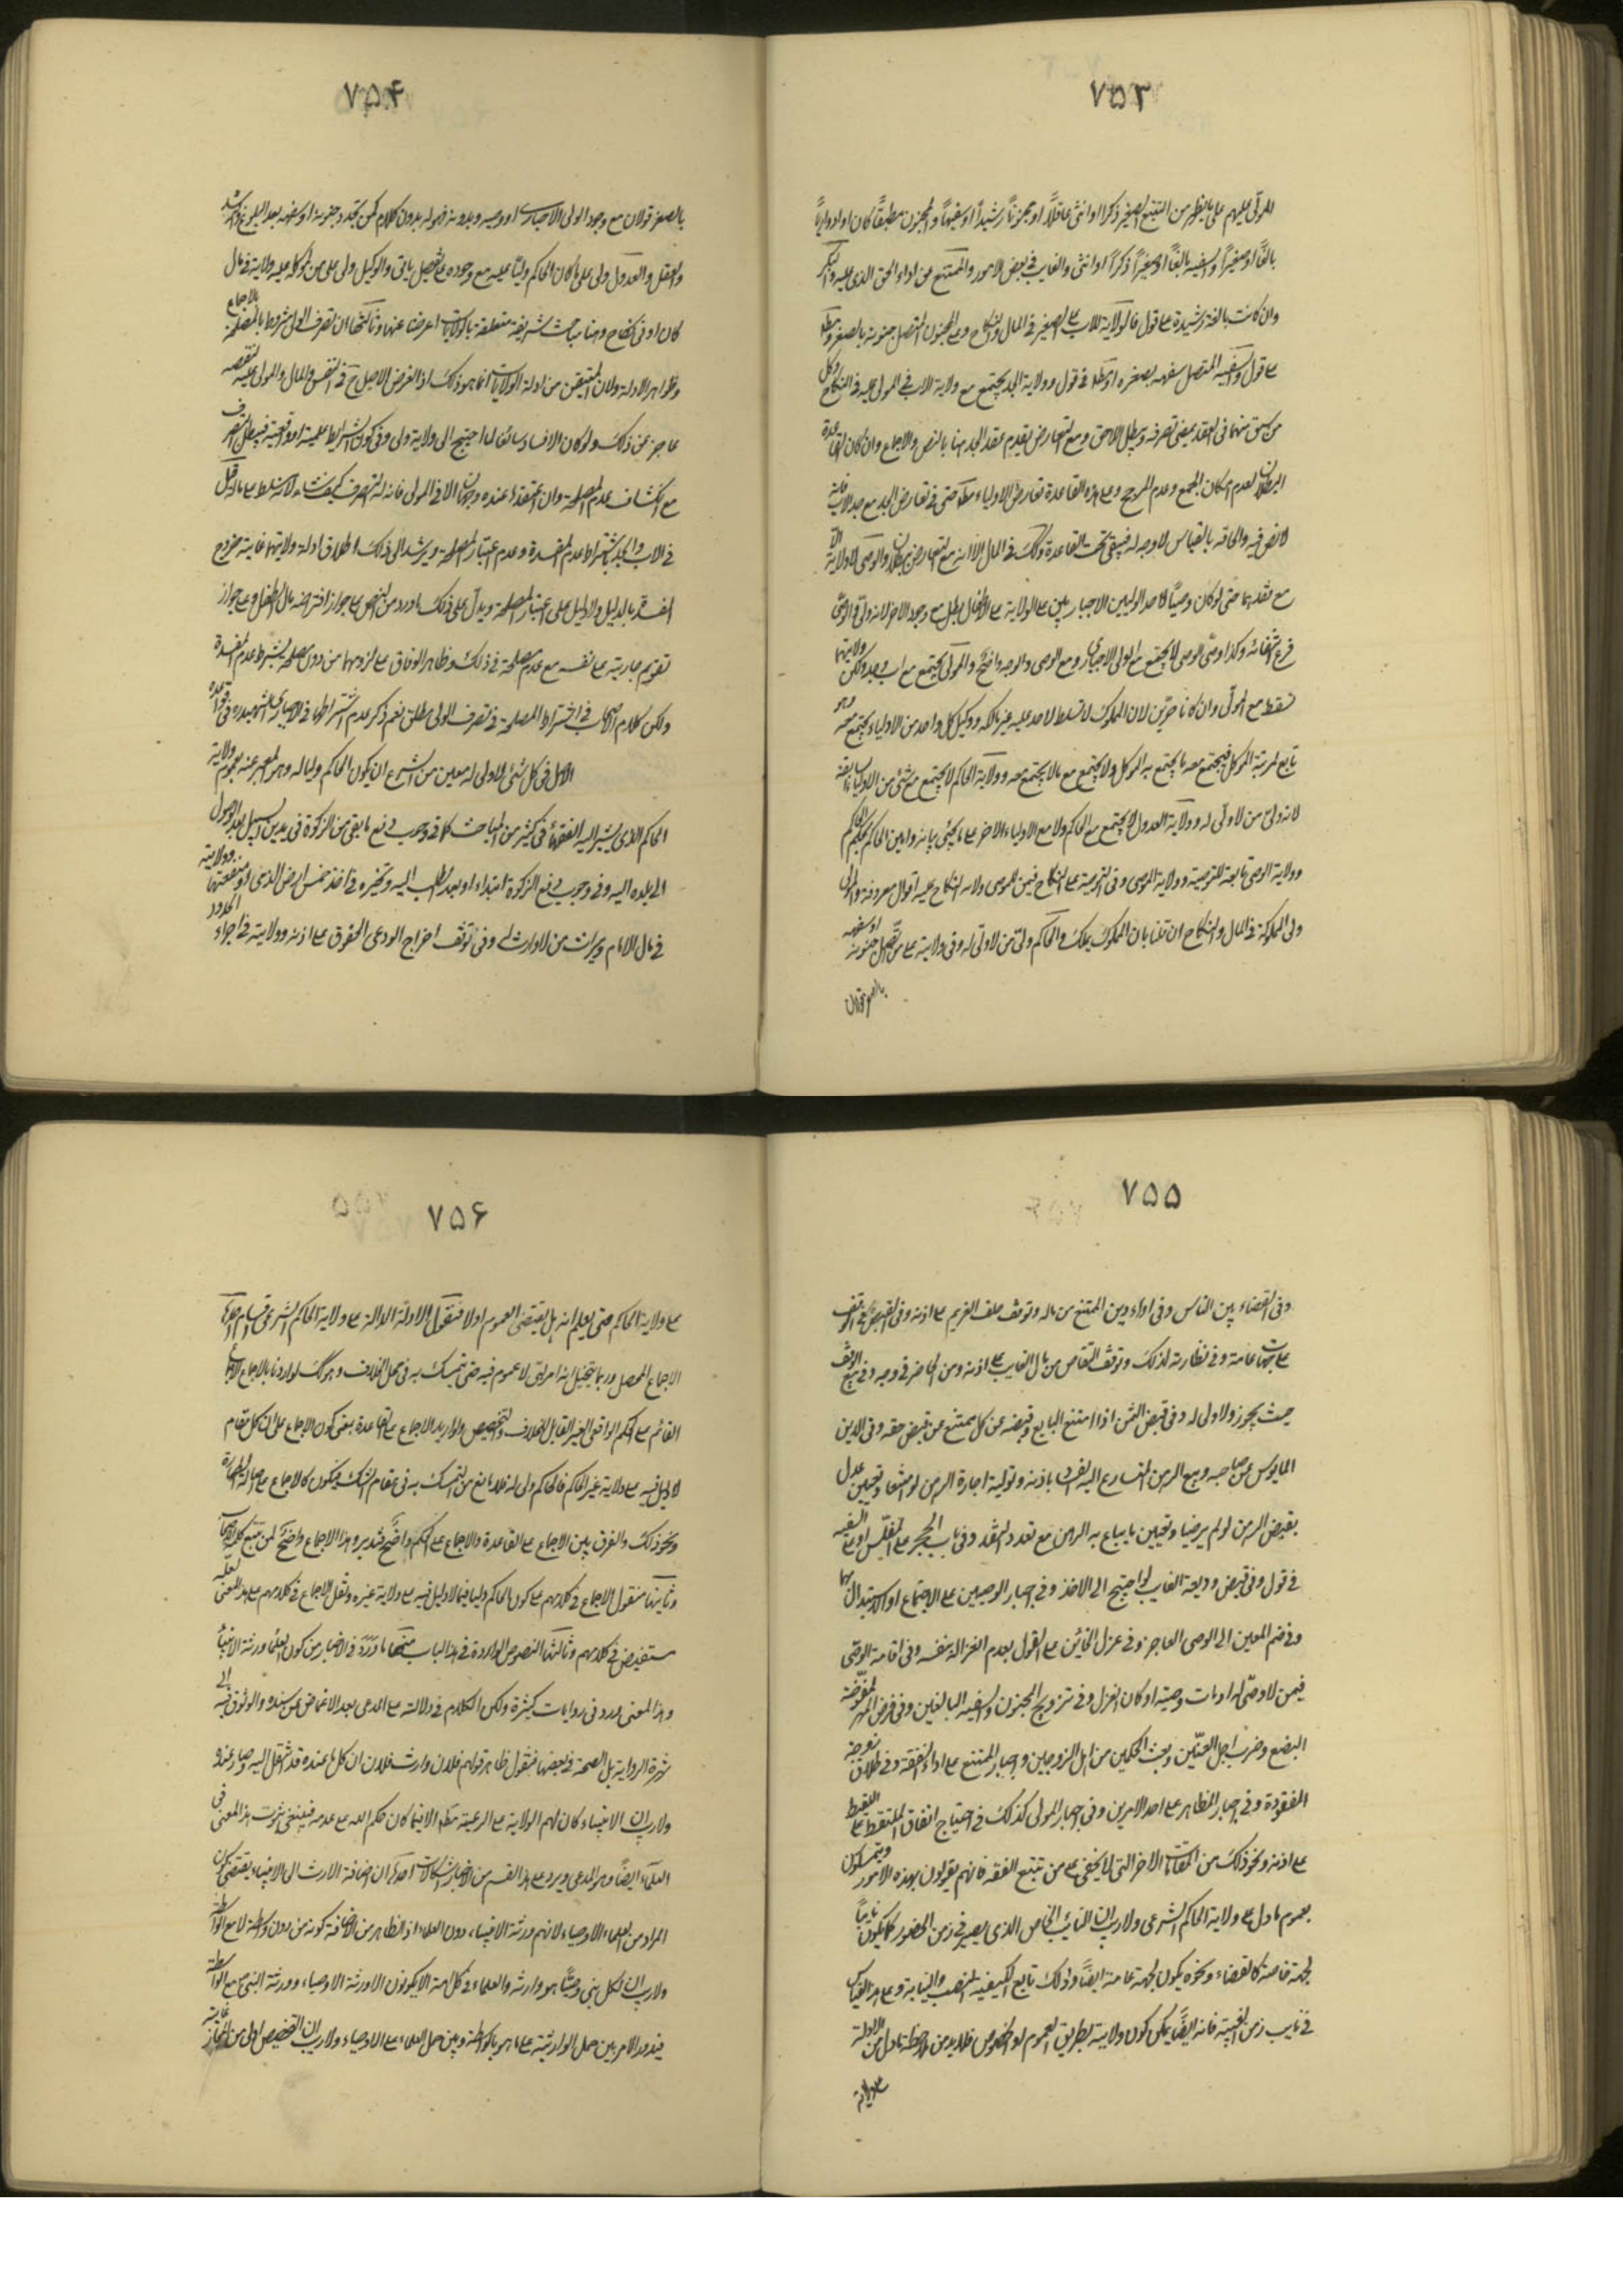 ٧٥٣
للمولّى عليهم على ما يظهر من التتبع الصغير ذكرا او انثى عاقلاً او مجنوناً رشيداً او سفيهاً والمجنون مطبقاً كان او ادوارياً
بالغاً او صغيراً والسفيه بالغاً او صغيراً ذكراً او انثى والغايب في بعض الامور والممتنع عن اداء الحق الذي عليه والبكر
وان كانت بالغة رشيدة على قول فالولاية للاب على الصغير في المال والنكاح وعلى المجنون المتصل جنونه بالصغر ومطلقا
على قول والسفيه المتصل سفهه بصغره او مطلقا في قول وولاية الجد يجتمع مع ولاية الاب في المولى عليه في النكاح وكل
من سبق منهما في العقد يمضي تصرفه ويبطل الاحق ومع التعارض يقدم عقد الجد هنا بالنص والاجماع وان كان القاعدة
البطلان لعدم امكان الجمع وعدم المرجح وعلى هذه القاعدة تعارض الاولياء مطلقا حتى في تعارض الجد مع جد الاب فانه
لا نص فيه والحاقه بالقياس لا وجه له فيبقى تحت القاعدة وكذلك في المال الا انه مع التعارض يبطلان والوصي لا ولاية الا
مع فقدهما حتى لو كان وصياً لاحد الوليين الاجباريين على الولاية على الاطفال يبطل مع وجود الاخر لانه ولى والوصي
فرع انتفائه وكذا وصى الوصى لا يجتمع مع الولى الاجبارى ومع الوصى والوجه واضح والمولى يجتمع مع اب وجد ولكن ولايتهما
تسقط مع المولّى وان كانا حرّين لان المملوك لا تسلط لاحد عليه غير مالكه ووكيل كل واحد من الاولياء يجتمع معه وهو
تابع لمرتبة الموكل فيجتمع معه ما يجتمع به الموكل ولا يجتمع مع ما لا يجتمع معه وولاية الحاكم لا يجتمع مع شئ من الاولياء السابقة
لانه ولىّ من لا ولّى له وولاية العدول لا يجتمع مع الحاكم ولا مع الاولياء الاخر على ما يجئ بيانه وامين الحاكم بحكم الحاكم
وولاية الوصى تابعة للتوصية وولاية الموصى وفي التوصية على النكاح فيمن للموصى ولاية النكاح عليه اقوال معروفة والمولى
ولى المملوكة في المال والنكاح ان قلنا بان المملوك يملك والحاكم ولىّ من لا ولّى له وفي ولايته على من اتّصل جنونه او سفهه
بالصغر قولان
٧٥۴
بالصغر قولان مع وجود الولى الاجبارى او وصيه وبدونه فهو له بدون كلام كمن تجدد جنونه او سفهه بعد البلوغ والرشد
والعقل والعدول ولى على ما كان الحاكم وليّا عليه مع وجوده على تفصيل ياتى والوكيل ولى على من الموكل عليه ولاية في مال
كان او في نكاح وهنا مباحث شريفة متعلقة بالولايات اعرضنا عنها وثالثها ان تصرف الولى مشروط بالمصلحة بالاجماع
وظواهر الادلة ولان المتيقن من ادلة الولايات انما هو ذلك اذ الغرض الاصلى ح في النفس والمال والمولى عليه لنقصه
عاجز عن ذلك ولو كان الافساد سائغا لما احتيج الى ولاية ولى وفي كون الشرايط علمية او واقعية فيبطل التصرف
مع انكشاف عدم المصلحة وان اعتقدها عنده وجهان الا في المولى فانه له التصرف كيف شاء لانه تسلط على ماله قيل
في الاب والجد باشتراط عدم المفسدة وعدم اعتبار المصلحة ويرشد الى ذلك اطلاق ادلة ولايتهما غايته خروج
المفسدة بالدليل ولا دليل على اعتبار المصلحة ويدل على ذلك ما ورد من النص على جواز اقتراضه مال الطفل وعلى جواز
تقويم جاريته على نفسه مع عدم مصلحة في ذلك وظاهر الوفاق على لزومها من دون مصلحة بشرط عدم المفسدة
ولكن كلام الاصحاب في اشتراط المصلحة في تصرف الولى مطلق نعم ذكر عدم اشتراطها في الاجبارى الشهيد ره في قواعده
الاصل في كل شئ لا ولى له معين من الشرع ان يكون الحاكم وليا له وهو المعبر عنه بعموم ولاية
الحاكم الذى يشير اليه الفقهاء في كثير من المباحث كما في وجوب دفع ما بقى من الزكوة في يد ابن السبيل بعد الوصول
الى بلده اليه وفي وجوب دفع الزكوة ابتداء او بعد الطلب اليه وتخييره في اخذ خمس ارض الذمى او منفعتها وولايته
في مال الامام وميراث من لا وارث له وفي توقف اخراج الودعى الحقوق على اذنه وولايته في اجراء الحدود
٧٥٥
وفي القضاء بين الناس وفي اداء دين الممتنع من ماله وتوقف حلف الغريم على اذنه وفي القبض في الوقف
على جهات عامة وفي نظارته لذلك وتوقف التقاص من مال الغايب على اذنه ومن الحاضر في وجه وفي بيع الوقف
حيث يجوز ولا ولى له وفي قبض الثمن اذا امتنع البايع وقبضه عن كل ممتنع عن قبض حقه وفي الدين
المايوس عن صاحبه وبيع الرهن المتسارع اليه الفساد باذنه وتولية اجارة الرهن لو امتنعا وتعيين عدل
يقبض الرهن لو لم يرضيا وتعيين ما يباع به الرهن مع تعدد النقد وفي باب الحجر على المفلّس او على السفيه
في قول وفي قبض وديعة الغايب لو احتيج الى الاخذ وفي اجبار الوصيين على الاجتماع او الاستبدال بهما
وفي ضم المعين الى الوصى العاجز وفي عزل الخائن على القول بعدم انعزاله بنفسه وفي اقامة الوصّى
فيمن لا وصّى له او مات وصيه او كان انعزل وفي تزويج المجنون والسفيه البالغين وفي فرض المهر لمفوّضة
البضع وضرب اجل العنّين وبعث الحكمين من اهل الزوجين واجبار الممتنع على اداء النفقة وفي طلاق زوجة
المفقودة وفي اجبار المظاهر على احد الامرين وفي اجبار المولى كذلك في احتياج انفاق الملتقط على اللقيط
على اذنه ونحو ذلك من المقامات الاخر التى لا يخفى على من تتبع الفقه فانهم يقولون بهذه الامور ويتمسكون
بعموم ما دل على ولاية الحاكم الشرعى ولا ريب ان النائب الخاص الذى يصير في زمن الحضور كما يكون نايباً
لجهة خاصة كالقضاء ونحوه يكون لجهة عامة ايضاً وذلك تابع لكيفية المنصب والنيابة وعلى هذا القياس
في نايب زمن الغيبة فانه ايضاً يمكن كون ولايته بطريق العموم او الخصوص فلا بد من ملاحظة ما دل من الادلة
على ولاية
٧٥۶
على ولاية الحاكم حتى يعلم انه هل يقتضى العموم اولا فنقول الادلة الدالة على ولاية الحاكم الشرعى اقسام احدها
الاجماع المحصل وربما يتخيل انه امر لبّى لا عموم فيه حتى يتمسك به في محل الخلاف وهو كك لو اردنا بالاجماع الاجماع
القائم على الحكم الواقعى الغير القابل للخلاف والتخصيص ولو اريد الاجماع على القاعدة بمعنى كون الاجماع على ان كل مقام
لا دليل فيه على ولاية غير الحاكم فالحاكم ولى له فلا مانع من التمسك به في مقام الشك ويكون كالاجماع على اصالة الطهارة
ونحو ذلك والفرق بين الاجماع على القاعدة والاجماع على الحكم واضح فتدبر وهذا الاجماع واضح لمن تتبع كلمة الاصحاب
وثانيها منقول الاجماع في كلامهم على كون الحاكم وليا فيما لا دليل فيه على ولاية غيره ونقل الاجماع في كلامهم على هذا المعنى لعله
مستفيض في كلامهم وثالثها النصوص الواردة في هذا الباب منها ما وَرَدَ في الاخبار من كون العلماء ورثة الانبياء
وهذا المعنى ورد في روايات كثيرة ولكن الكلام في دلالته على المدعى بعد الاغماض عن سنده والوثوق به الى
شهرة الرواية بل الصحة في بعضها فنقول ظاهر قولهم فلان وارث فلان ان كل ما عنده قد انتقل اليه وصار عنده
ولا ريب ان الانبياء كان لهم الولاية على الرعية مطلقا الا فيما كان حكم الله على عدمه فينبغى ثبوت هذا المعنى في
العلماء ايضاً وهو المدعى ويرد على هذا القسم من الاخبار اشكالات احدها ان اضافة الارث الى الانبياء يقتضى كون
المراد من العلماء الاوصياء لانهم ورثة الانبياء دون العلماء اذ الظاهر من الاضافة كونه من دون واسطة لا مع الواسطة
ولا ريب ان لكل نبى وصيّاً هو وارثه والعلماء في كل امة لا يكونون الا ورثة الاوصياء وورثة النبى ص مع الواسطة
فيدور الامر بين حمل الوارثية على ما هو بالواسطة وبين حمل العلماء على الاوصياء ولا ريب ان التخصيص اولى من المجاز غايته